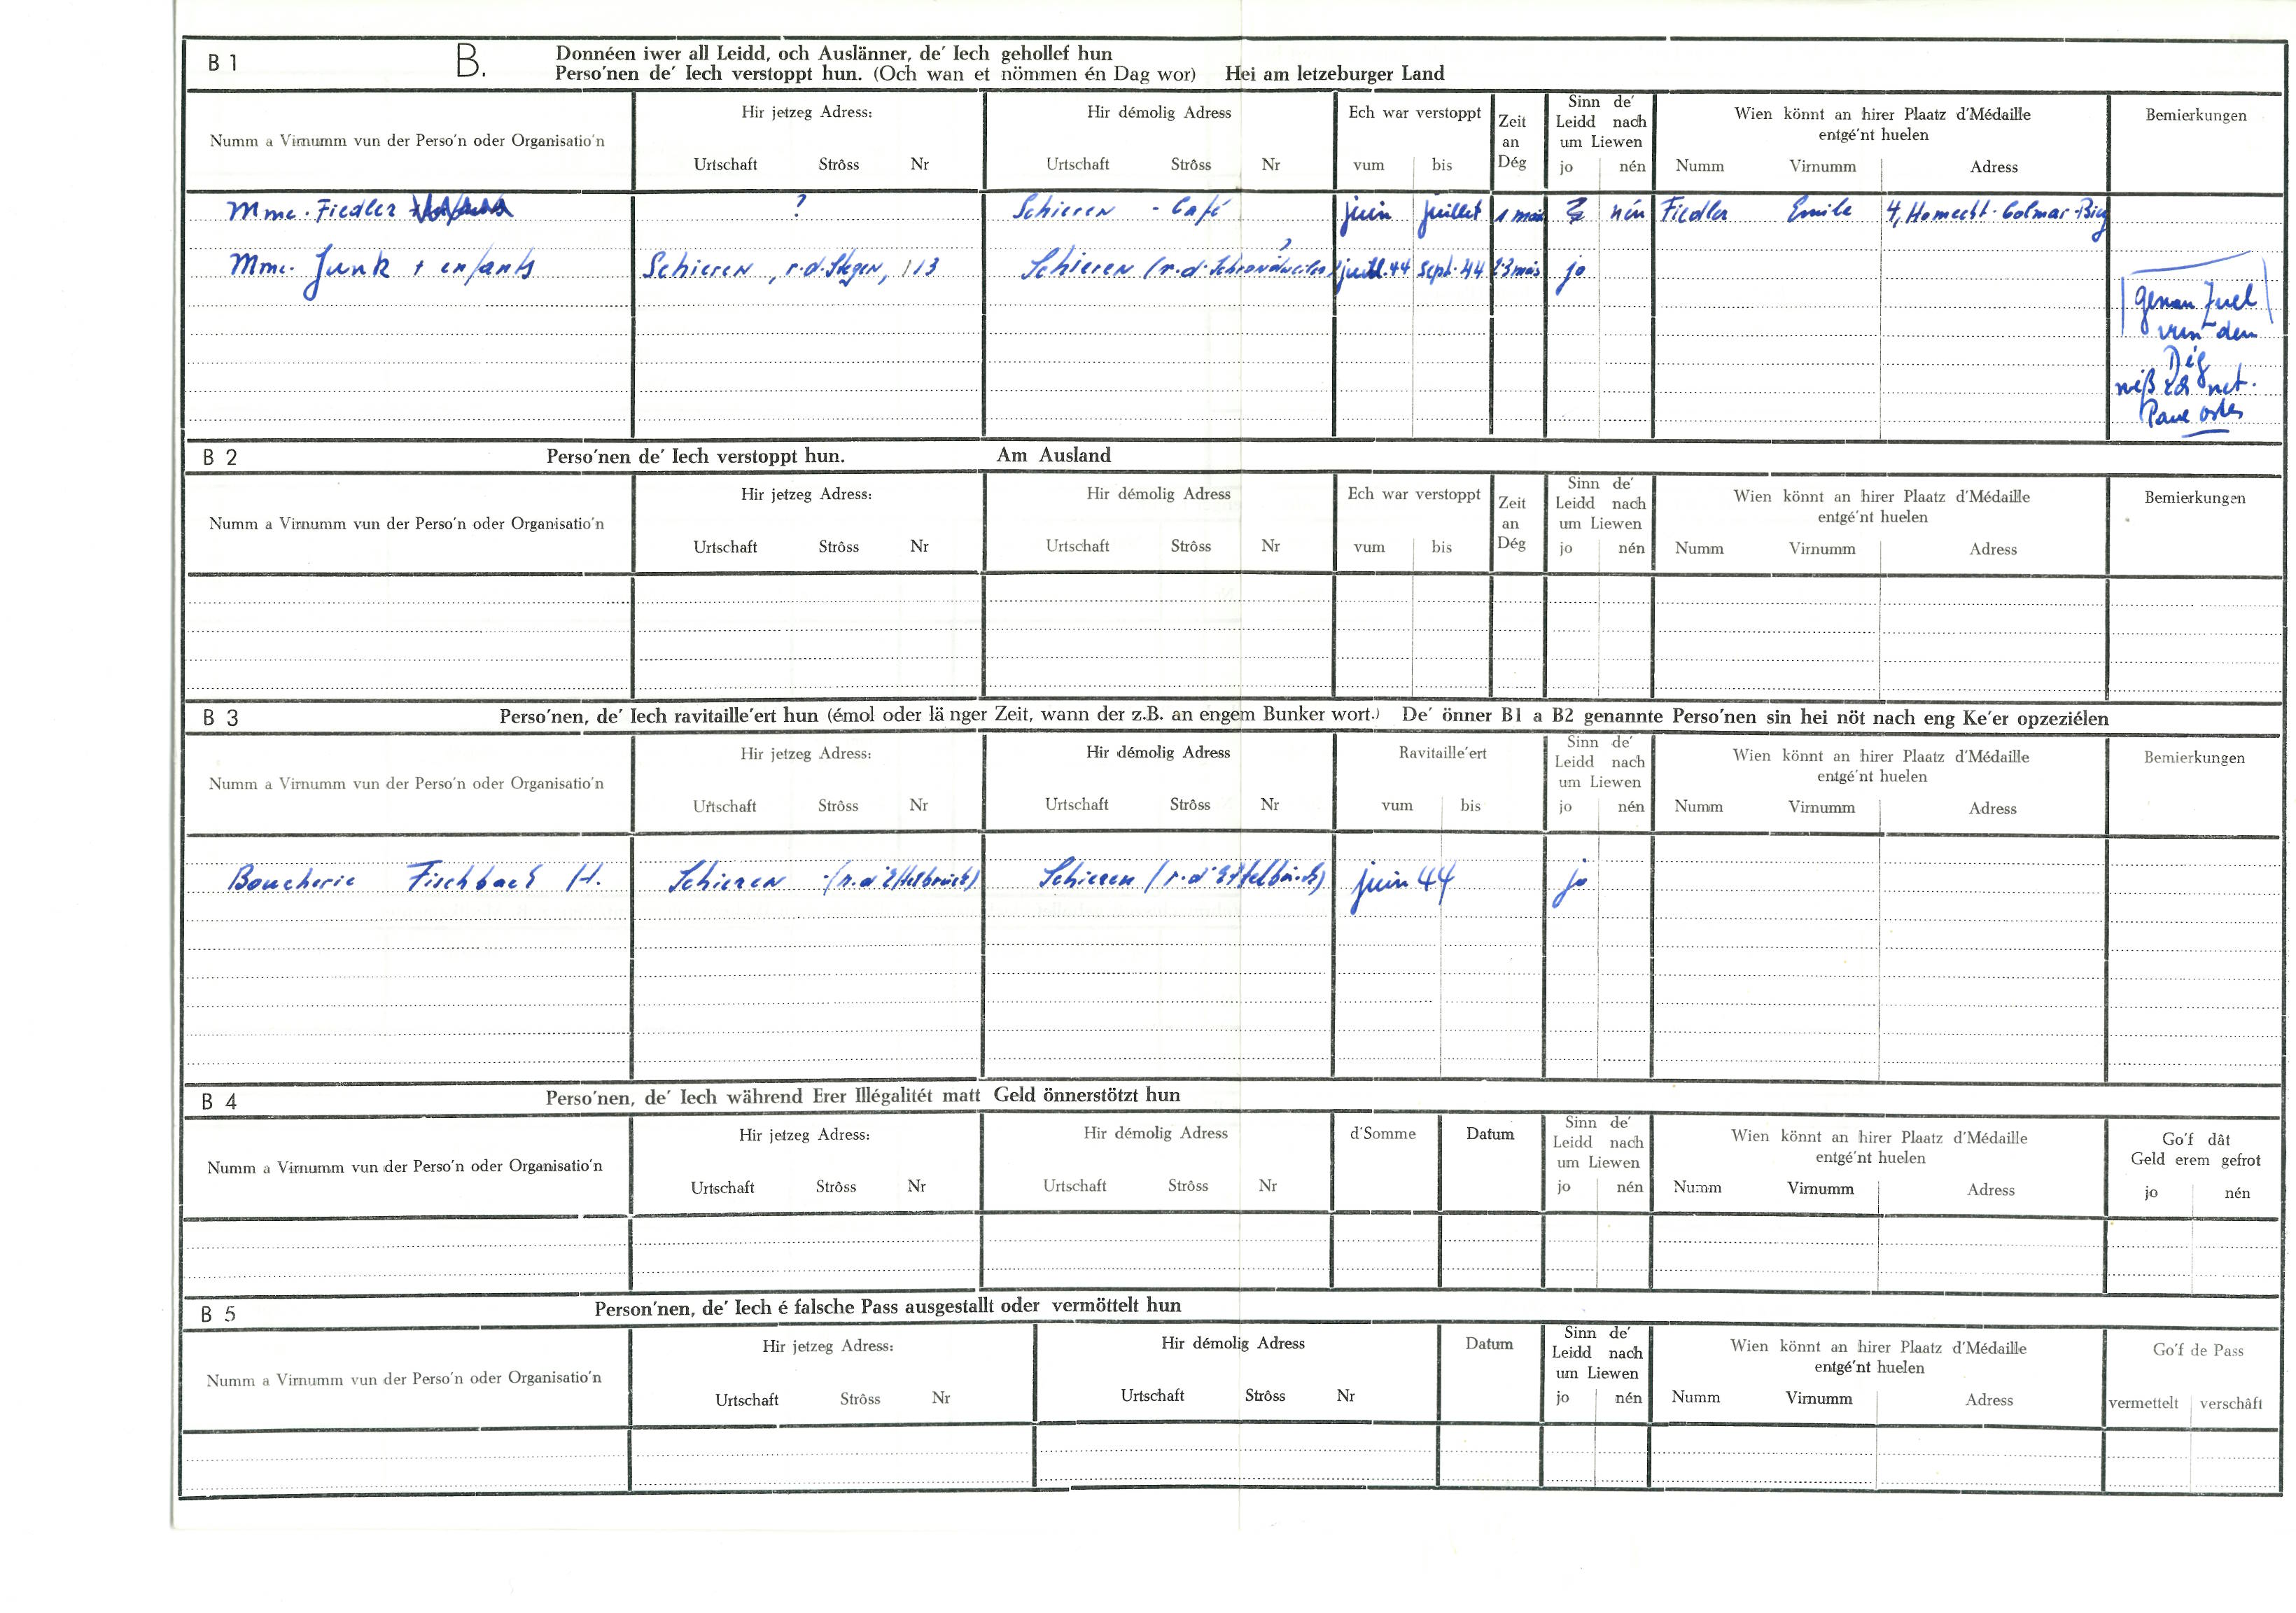 B 1 B. Donnéen iwer all Leidd, och Auslänner, de' Iech gehollef hun
Perso'nen de' Iech verstoppt hun. (Och wan et nömmen én Dag wor) Hei am letzeburger Land
Numm a Virnumm vun der Perso'n oder Organisatio'n
Hir jetzeg Adress:
Urtschaft Strôss Nr
Hir démolig Adress
Urtschaft Strôss Nr
Ech war verstoppt
vum bis
Zeit
an
Dég
Sinn de'
Leidd nach
um Liewen
jo nén
Wien könnt an hirer Plaatz d'Médaille
entgé'nt huelen
Numm Virnumm Adress
Bemierkungen
Mme. Fiedler ? Schieren - Café juin juillet 1 mois nén Fiedler Emile 4, Homecht-Colmar-Big
Mme. Junk + enfants Schieren, r.d. Stegen, 113 Schieren (r.d. Schrondweiler) juill. 44 sept. 44 2-3 mois jo
genau Zuel
vun den
Dég
wéß net.
B 2 Perso'nen de' Iech verstoppt hun. Am Ausland
Numm a Virnumm vun der Perso'n oder Organisatio'n
Hir jetzeg Adress:
Urtschaft Strôss Nr
Hir démolig Adress
Urtschaft Strôss Nr
Ech war verstoppt
vum bis
Zeit
an
Dég
Sinn de'
Leidd nach
um Liewen
jo nén
Wien könnt an hirer Plaatz d'Médaille
entgé'nt huelen
Numm Virnumm Adress
Bemierkungen
B 3 Perso'nen, de' Iech ravitaille'ert hun (émol oder länger Zeit, wann der z.B. an engem Bunker wort.) De' önner B1 a B2 genannte Perso'nen sin hei nöt nach eng Ke'er opzeziélen
Numm a Virnumm vun der Perso'n oder Organisatio'n
Hir jetzeg Adress:
Urtschaft Strôss Nr
Hir démolig Adress
Urtschaft Strôss Nr
Ravitaille'ert
vum bis
Sinn de'
Leidd nach
um Liewen
jo nén
Wien könnt an hirer Plaatz d'Médaille
entgé'nt huelen
Numm Virnumm Adress
Bemierkungen
Boucherie Fischbach H. Schieren (r. d'Ettelbruck) Schieren (r. d'Ettelbruck) juin 44 jo
B 4 Perso'nen, de' Iech während Erer Illégalitét matt Geld önnerstötzt hun
Numm a Virnumm vun der Perso'n oder Organisatio'n
Hir jetzeg Adress:
Urtschaft Strôss Nr
Hir démolig Adress
Urtschaft Strôss Nr
d'Somme
Datum
Sinn de'
Leidd nach
um Liewen
jo nén
Wien könnt an hirer Plaatz d'Médaille
entgé'nt huelen
Numm Virnumm Adress
Go'f dât
Geld erem gefrot
jo nén
B 5 Person'nen, de' Iech é falsche Pass ausgestallt oder vermöttelt hun
Numm a Virnumm vun der Perso'n oder Organisatio'n
Hir jetzeg Adress:
Urtschaft Strôss Nr
Hir démolig Adress
Urtschaft Strôss Nr
Datum
Sinn de'
Leidd nach
um Liewen
jo nén
Wien könnt an hirer Plaatz d'Médaille
entgé'nt huelen
Numm Virnumm Adress
Go'f de Pass
vermettelt verschâft